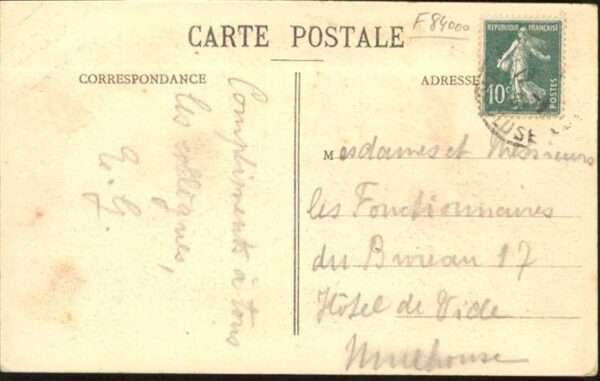 F 84000
CARTE POSTALE
REPUBLIQUE FRANÇAISE
10c
POSTES
CORRESPONDANCE
ADRESSE
Compliments à tous
les collègues,
Mesdames et Messieurs
les Fonctionnaires
du Bureau 17
Hôtel de Ville
Mulhouse